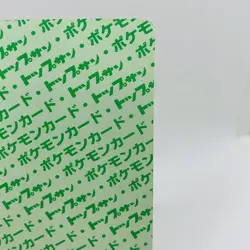 トップサン・ポケモンカード
ポケモンカード・トップサン
トップサン・ポケモンカード・
ポケモンカード・トップサン
トップサン・ポケモンカード・
ポケモンカード・トップサン・
トップサン・ポケモンカード
ポケモンカード・トップサン
トップサン・ポケモンカード